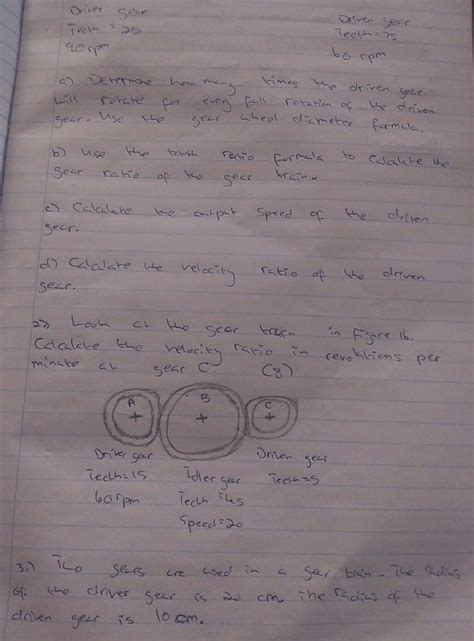 Driver gear
Teeth = 25
90 rpm
Driven gear
Teeth = 75
60 rpm
a) Determine how many times the driven gear
will rotate for every full rotation of the driven
gear. Use the gear wheel diameter formula.
b) Use the tooth ratio formula to calculate the
gear ratio of the gear train.
c) Calculate the output speed of the driven
gear.
d) Calculate the velocity ratio of the driven
gear.
2) Look at the gear train in figure 16.
Calculate the velocity ratio in revolutions per
minute at gear C. (8)
A B C
Driver gear
Teeth = 15
60 rpm
Idler gear
Teeth = 45
Speed = 20
Driven gear
Teeth = 5
3.) Two gears are used in a gear train. The radius
of the driver gear is 20 cm. The radius of the
driven gear is 10 cm.